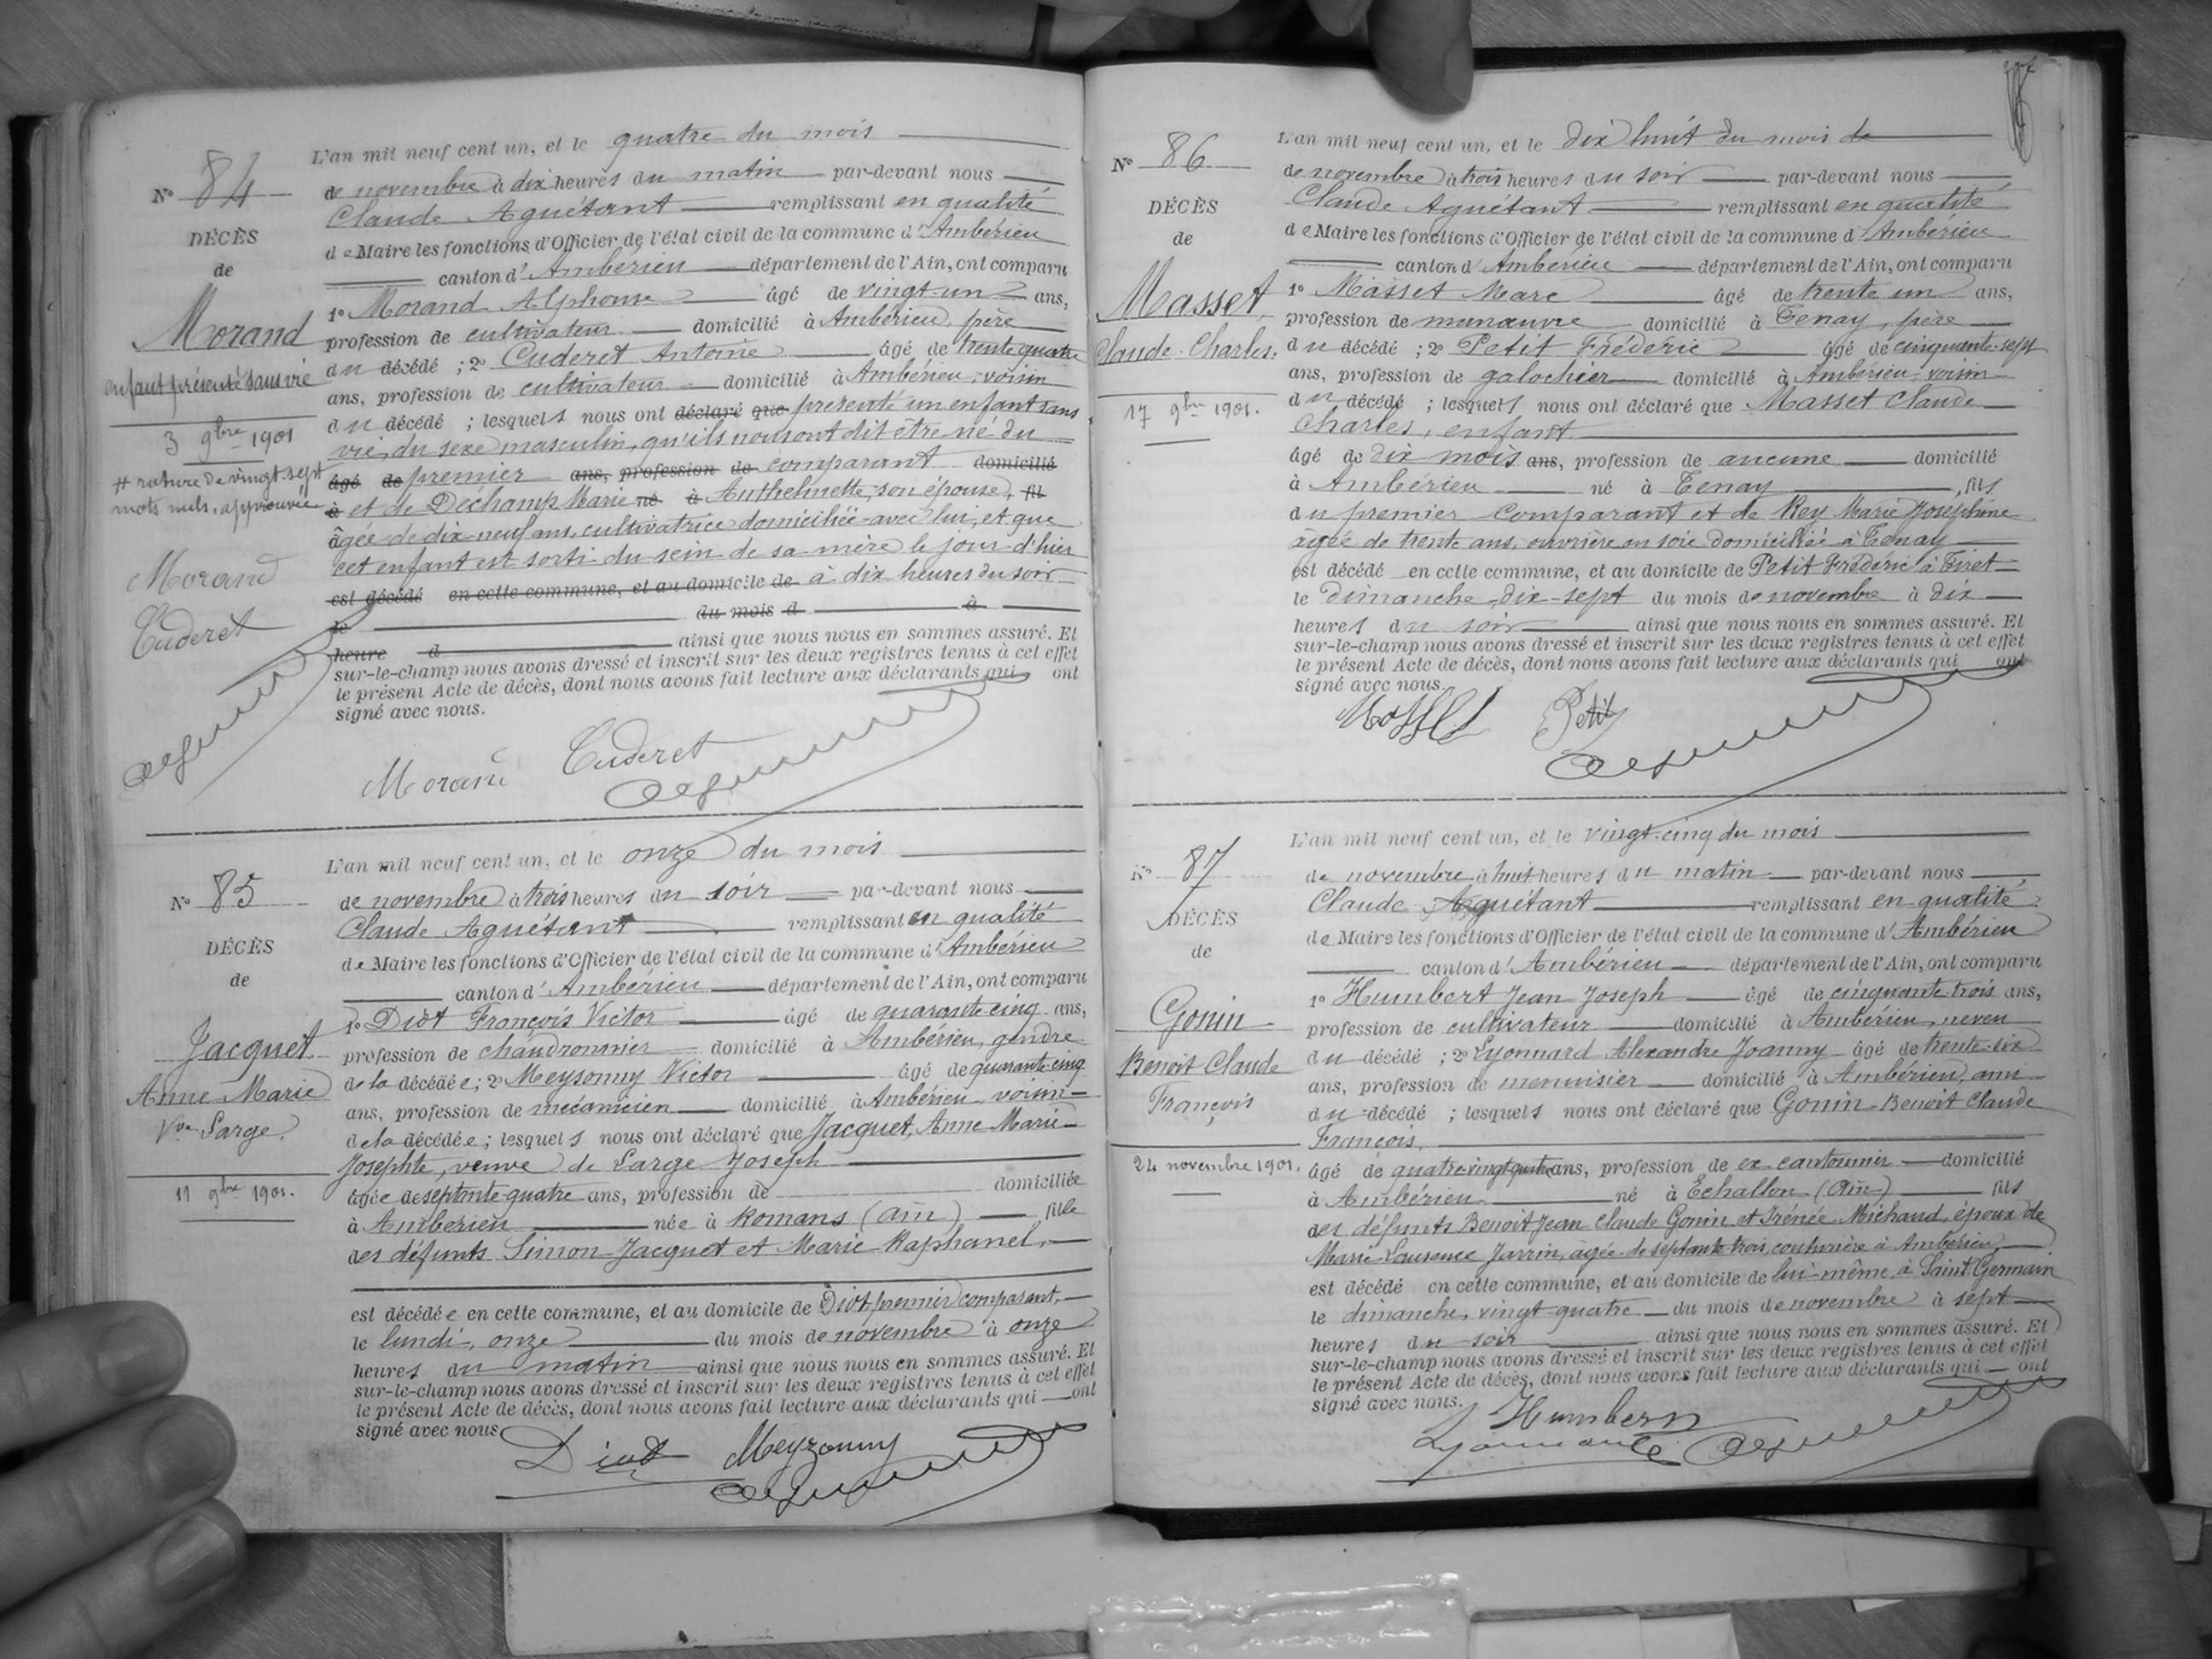 L'an mil neuf cent un, et le quatre du mois
N° 84
de novembre à dix heures du matin par-devant nous
Claude Aguétant remplissant en qualité
DÉCÈS
de Maire les fonctions d'Officier de l'état civil de la commune d'Ambérieu
de
canton d'Ambérieu département de l'Ain, ont comparu
Morand
1° Morand Alphonse âgé de vingt-un ans,
profession de cultivateur domicilié à Ambérieu, père
enfant présenté sans vie
du décédé ; 2° Cuderet Antoine âgé de trente quatre
ans, profession de cultivateur domicilié à Ambérieu, voisin
3 9bre 1901
du décédé ; lesquels nous ont déclaré que présenté un enfant sans
vie, du sexe masculin, qu'ils nous ont dit être né du
# rature de vingt-sept
mots nuls, approuvée
âgé de premier ans, profession de comparant domicilié
à et de Déchamp Marie né à Anthelmette, son épouse, fil
âgée de dix-neuf ans, cultivatrice domiciliée avec lui, et que
cet enfant est sorti du sein de sa mère le jour d'hier
est décédé en cette commune, et au domicile de à dix heures du soir
le du mois d à
heure d ainsi que nous nous en sommes assuré. Et
sur-le-champ nous avons dressé et inscrit sur les deux registres tenus à cet effet
le présent Acte de décès, dont nous avons fait lecture aux déclarants qui ont
signé avec nous.
Morand
Cuderet
Morand Cuderet
L'an mil neuf cent un, et le onze du mois
N° 85
de novembre à trois heures du soir par-devant nous
Claude Aguétant remplissant en qualité
DÉCÈS
de Maire les fonctions d'Officier de l'état civil de la commune d'Ambérieu
de
canton d'Ambérieu département de l'Ain, ont comparu
Jacquet
Anne Marie
Vve Large
1° Diot François Victor âgé de quarante-cinq ans,
profession de chaudronnier domicilié à Ambérieu, gendre
de la décédée ; 2° Meysonny Victor âgé de quarante-cinq
ans, profession de mécanicien domicilié à Ambérieu, voisin
de la décédée ; lesquels nous ont déclaré que Jacquet, Anne Marie
Josephte, veuve de Large Joseph
11 9bre 1901.
âgée de septante-quatre ans, profession de domiciliée
à Ambérieu née à Romans (Ain) fille
des défunts Simon Jacquet et Marie Raphanel,
est décédée en cette commune, et au domicile de Diot, premier comparant,
le lundi, onze du mois de novembre à onze
heures du matin ainsi que nous nous en sommes assuré. Et
sur-le-champ nous avons dressé et inscrit sur les deux registres tenus à cet effet
le présent Acte de décès, dont nous avons fait lecture aux déclarants qui ont
signé avec nous
Diot Meyzonny
L'an mil neuf cent un, et le dix huit du mois de
N° 86
de novembre à trois heures du soir par-devant nous
Claude Aguétant remplissant en qualité
DÉCÈS
de Maire les fonctions d'Officier de l'état civil de la commune d'Ambérieu
de
canton d'Ambérieu département de l'Ain, ont comparu
Masset,
Claude-Charles.
1° Masset Marc âgé de trente un ans,
profession de manœuvre domicilié à Tenay, père
du décédé ; 2° Petit Frédéric âgé de cinquante-sept
ans, profession de galochier domicilié à Ambérieu, voisin
17 9bre 1901.
du décédé ; lesquels nous ont déclaré que Masset Claude
Charles, enfant
âgé de dix mois ans, profession de aucune domicilié
à Ambérieu né à Tenay, fils
du premier comparant et de Rey Marie Joséphine
âgée de trente ans, ouvrière en soie domiciliée à Tenay
est décédé en cette commune, et au domicile de Petit Frédéric à Tiret
le dimanche, dix-sept du mois de novembre à dix
heures du soir ainsi que nous nous en sommes assuré. Et
sur-le-champ nous avons dressé et inscrit sur les deux registres tenus à cet effet
le présent Acte de décès, dont nous avons fait lecture aux déclarants qui ont
signé avec nous.
Masset Petit
L'an mil neuf cent un, et le vingt-cinq du mois
N° 87
de novembre à huit heures du matin par-devant nous
Claude Aguétant remplissant en qualité
DÉCÈS
de Maire les fonctions d'Officier de l'état civil de la commune d'Ambérieu
de
canton d'Ambérieu département de l'Ain, ont comparu
Gonin
Benoit Claude
François
1° Humbert Jean Joseph âgé de cinquante-trois ans,
profession de cultivateur domicilié à Ambérieu, neveu
du décédé ; 2° Lyonnard Alexandre Joanny âgé de trente-six
ans, profession de menuisier domicilié à Ambérieu, ami
du décédé ; lesquels nous ont déclaré que Gonin Benoit Claude
François,
24 novembre 1901.
âgé de quatre-vingt-quatre ans, profession de ex-cantonnier domicilié
à Ambérieu né à Echallon (Ain) fils
des défunts Benoit Jean Claude Gonin et Irénée Michaud, époux de
Marie Laurence Jarrin, âgée de septante trois, couturière à Ambérieu,
est décédé en cette commune, et au domicile de lui-même, à Saint Germain
le dimanche, vingt-quatre du mois de novembre à sept
heures du soir ainsi que nous nous en sommes assuré. Et
sur-le-champ nous avons dressé et inscrit sur les deux registres tenus à cet effet
le présent Acte de décès, dont nous avons fait lecture aux déclarants qui ont
signé avec nous.
Humbert